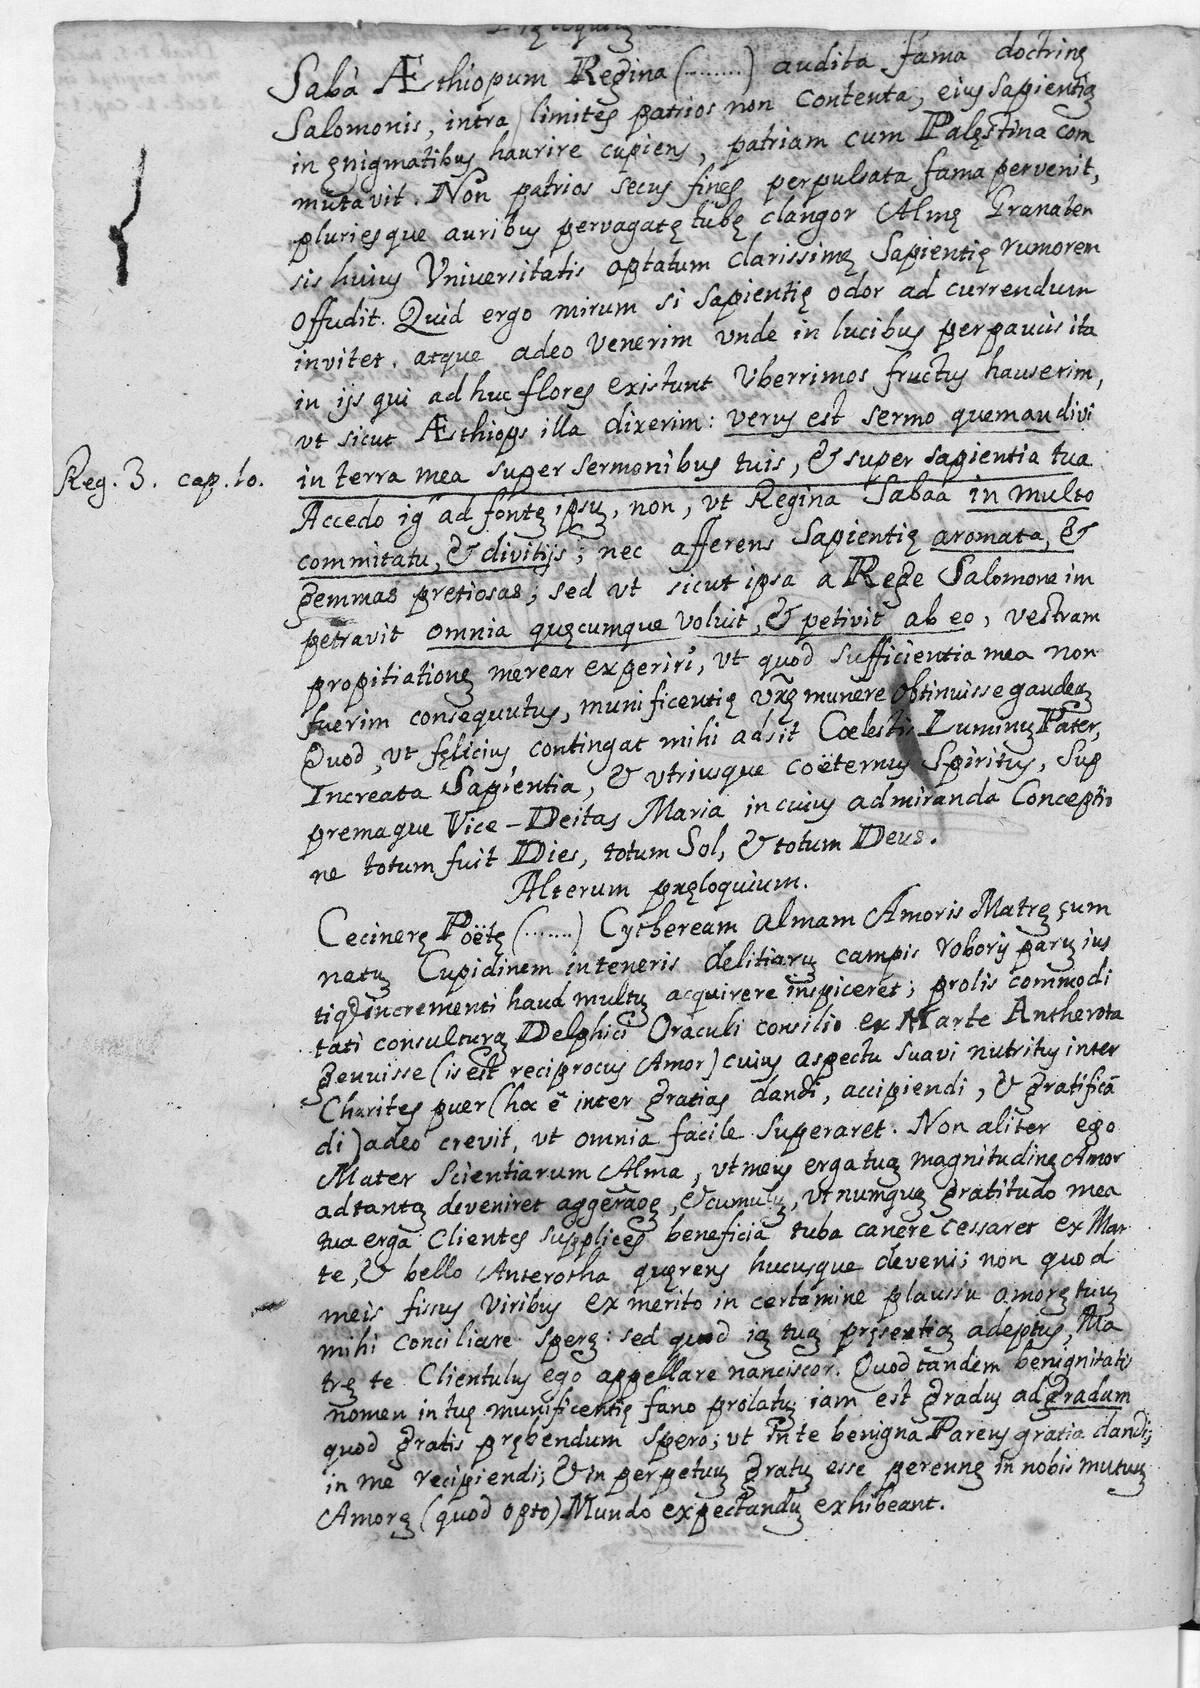 Sabà Æthiopum Regina (........) audita fama doctrinę
Salomonis, intra limites patrios non contenta, eius sapientię
in ęnigmatibus haurire cupiens, patriam cum Palęstina com
mutavit. Non patrios secus fines perpulsata fama pervenit,
pluriesque auribus pervagatę tubę clangor Almę Granaten
sis huius Vniuersitatis optatum clarissimę Sapientię rumorem
offudit. Quid ergo mirum si sapientię odor ad currendum
invitet. atque adeo venerim vnde in lucibus perpaucis ita
in ijs qui adhuc flores existunt Vberrimos fructus hauserim,
vt sicut Æthiops illa dixerim: verus est sermo quem audivi
Reg. 3. cap. 10.
in terra mea super sermonibus tuis, & super sapientia tua
Accedo igr̃ ad fontę ipsų, non, vt Regina Sabaa in multo
commitatu, & divitijs; nec afferens Sapientię aromata, &
gemmas pretiosas; sed vt sicut ipsa a Rege Salomone im
petravit omnia quęcumque voluit, & petivit ab eo, vestram
propitiationę merear experiri, vt quod sufficientia mea non
fuerim consequutus, munificentię vr̃ę munere obtinuisse gaudeą
Quod, vt fęlicius contingat mihi adsit Cœlestis Luminų Pater,
Increata Sapientia, & vtriusque coëternus Spiritus, Sup
premaque Vice-Deitas Maria in cuius admiranda Conceptio
ne totum fuit Dies, totum Sol, & totum Deus.
Alterum pręloquium.
Cecinerę Poëtę (.......) Cytheream almam Amoris Matrę çum
natų Cupidinem in teneris delitiarų campis roborij parų ius
tiq̃ incrementi haud multų acquirere inspiceret; prolis commodi
tati consulturą Delphici Oraculi consilio ex Marte Antherota
genuisse (is est reciprocus Amor) cuius aspectu suavi nutritus inter
Charites puer (hoc ẽ inter gratias dandi, accipiendi, & gratificã
di) adeo crevit, vt omnia facile superaret. Non aliter ego
Mater Scientiarum Alma, vt meus erga tuą magnitudinę Amor
ad tantą deveniret aggeraoę, & cumulų, vt numquą gratitudo mea
tua erga Clientes supplices beneficia tuba canere cessaret ex Mar
te, & bello Anterotha quęrens hucusque deveni; non quod
meis fissus viribus ex merito in certamine plausu amorę tuų
mihi conciliare sperę: sed quod ią tuą pręsentią adeptus, Ma
trę te Clientulus ego appellare nanciscor. Quod tandem benignitatis
nomen in tuę munificentię fano prolatų iam est gradus ad gradum
quod gratis pręhendum spero; vt in te benigna Parens gratia dandi;
in me recipiendi; & in perpetuų gratų esse perennę in nobis mutuų
Amorę (quod opto) Mundo expectandų exhibeant.